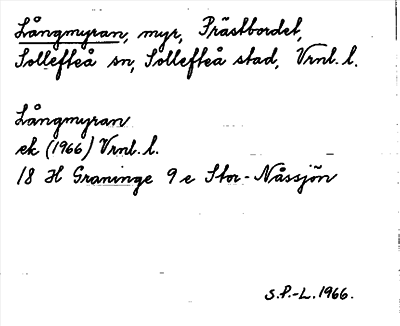 Långmyran, myr, Prästbordet,
Sollefteå sn, Sollefteå stad, Vrnl. l.
Långmyran
ek (1966) Vrnl. l.
18 H Graninge 9 e Stor-Nåssjön
S.P.-L. 1966.